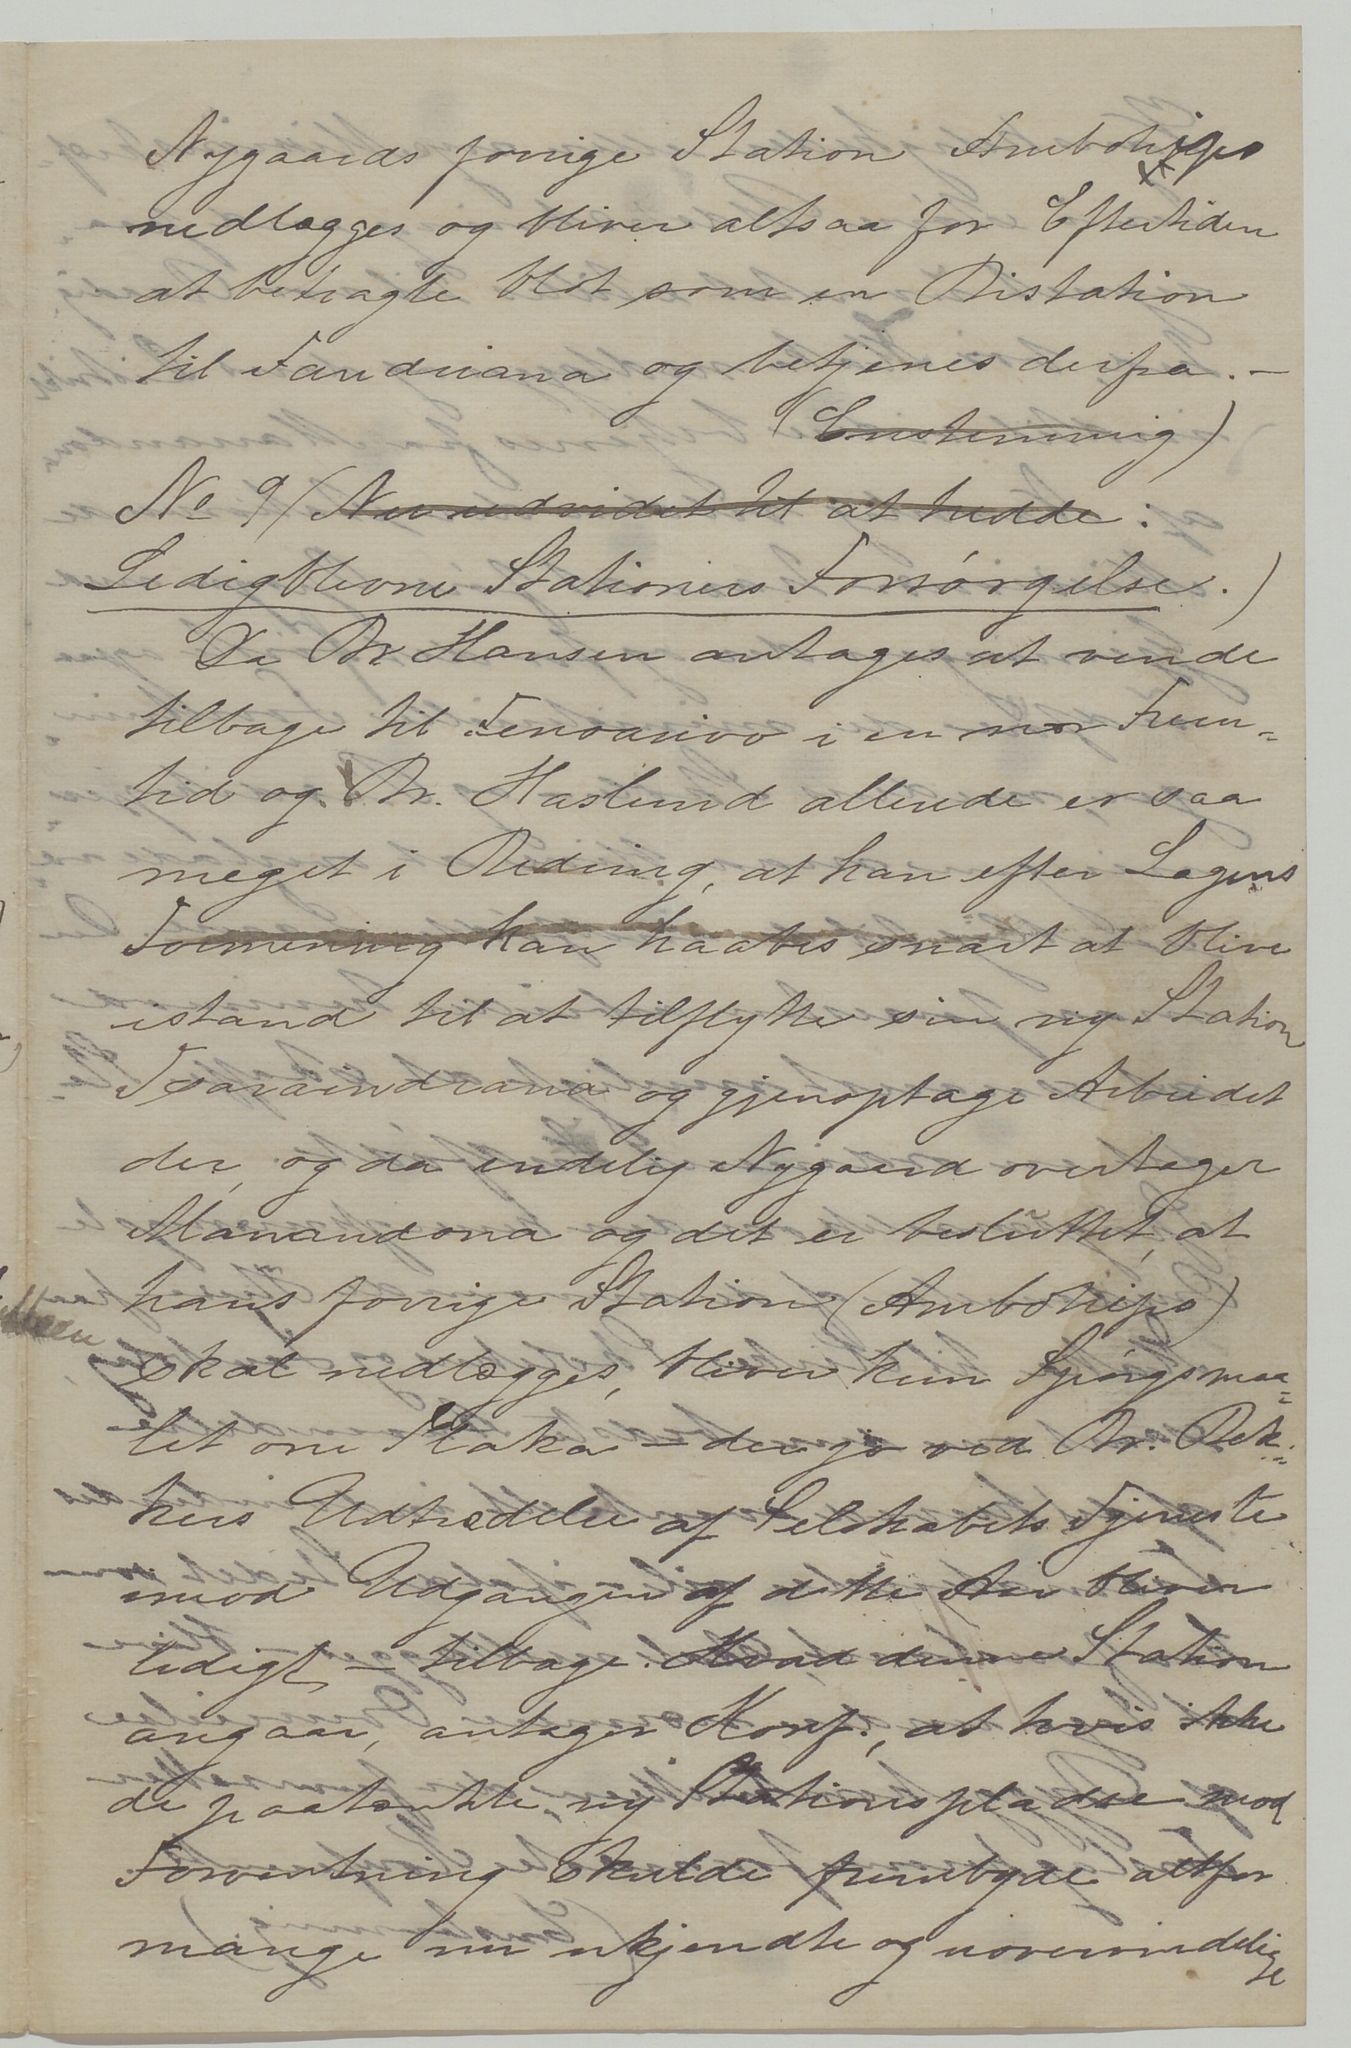 Nygaards forrige Station Ambohipo
nedlægges og bliver altsaa for Eftertiden
at betragte blot som en Bistation
til Fandriana og betjenes derfra. –
(Enstemmig)
No 9 (Nu udvidet til at hedde:
Ledigblevne Stationers Forsørgelse.)
Da Br. Hansen antages at vende
tilbage til Fenoarivo i en nær Frem-
tid og Br. Haslund allerede er saa
meget i Bedring, at han efter Lægens
Formening kan haabes snart at blive
istand til at tilflytte sin ny Station
Tsaraindrana og gjenoptage Arbeidet
der, og da endelig Nygaard overtager
Manandona og det er besluttet, at
hans forrige Station (Ambohipo)
skal nedlægges, bliver kun Spørgsmaa-
let om Ilaka – der jo ved Br. Bek-
kers Udtrædelse af Selskabets Tjeneste
imod Udgangen af dette Aar bliver
ledigt – tilbage. Hvad denne Station
angaar, antager Konf., at hvis ikke
de paatænkte, ny Stationspladse mod
Forventning skulde frembyde altfor
mange nu ukjendte og uovervindelige